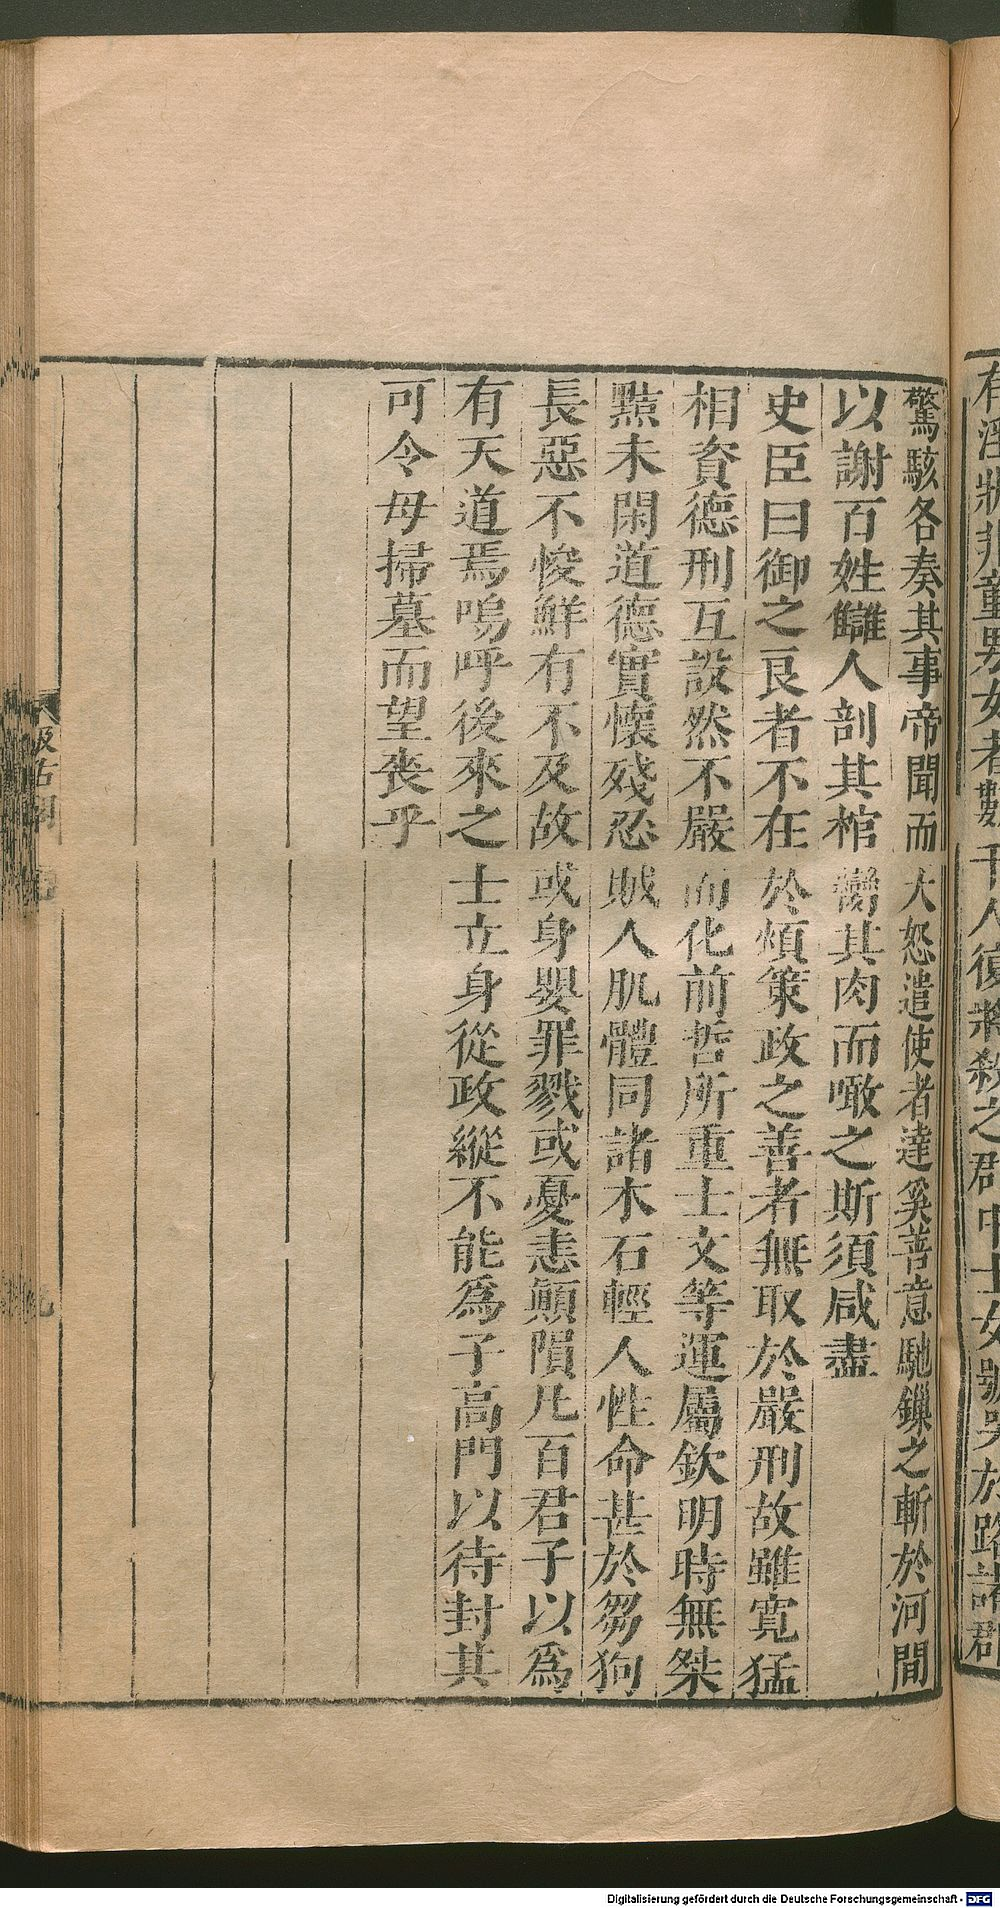 有淫狀非童男女者數千人復將殺之郡中士女號哭於路諸郡
驚駭各奏其事帝聞而大怒遣使者達奚善意馳鏁之斬於河間
以謝百姓讎人剖其棺臠其肉而噉之斯須咸盡
史臣曰御之良者不在於煩策政之善者無取於嚴刑故雖寬猛
相資德刑互設然不嚴而化前哲所重士文等運屬欽明時無桀
黠未閑道德實懷殘忍賊人肌體同諸木石輕人性命甚於芻狗
長惡不悛鮮有不及故或身嬰罪戮或憂恚顚隕凡百君子以爲
有天道焉嗚呼後來之士立身從政縱不能爲子高門以待封其
可令母掃墓而望喪乎
汲古閣
九
Digitalisierung gefördert durch die Deutsche Forschungsgemeinschaft - DFG